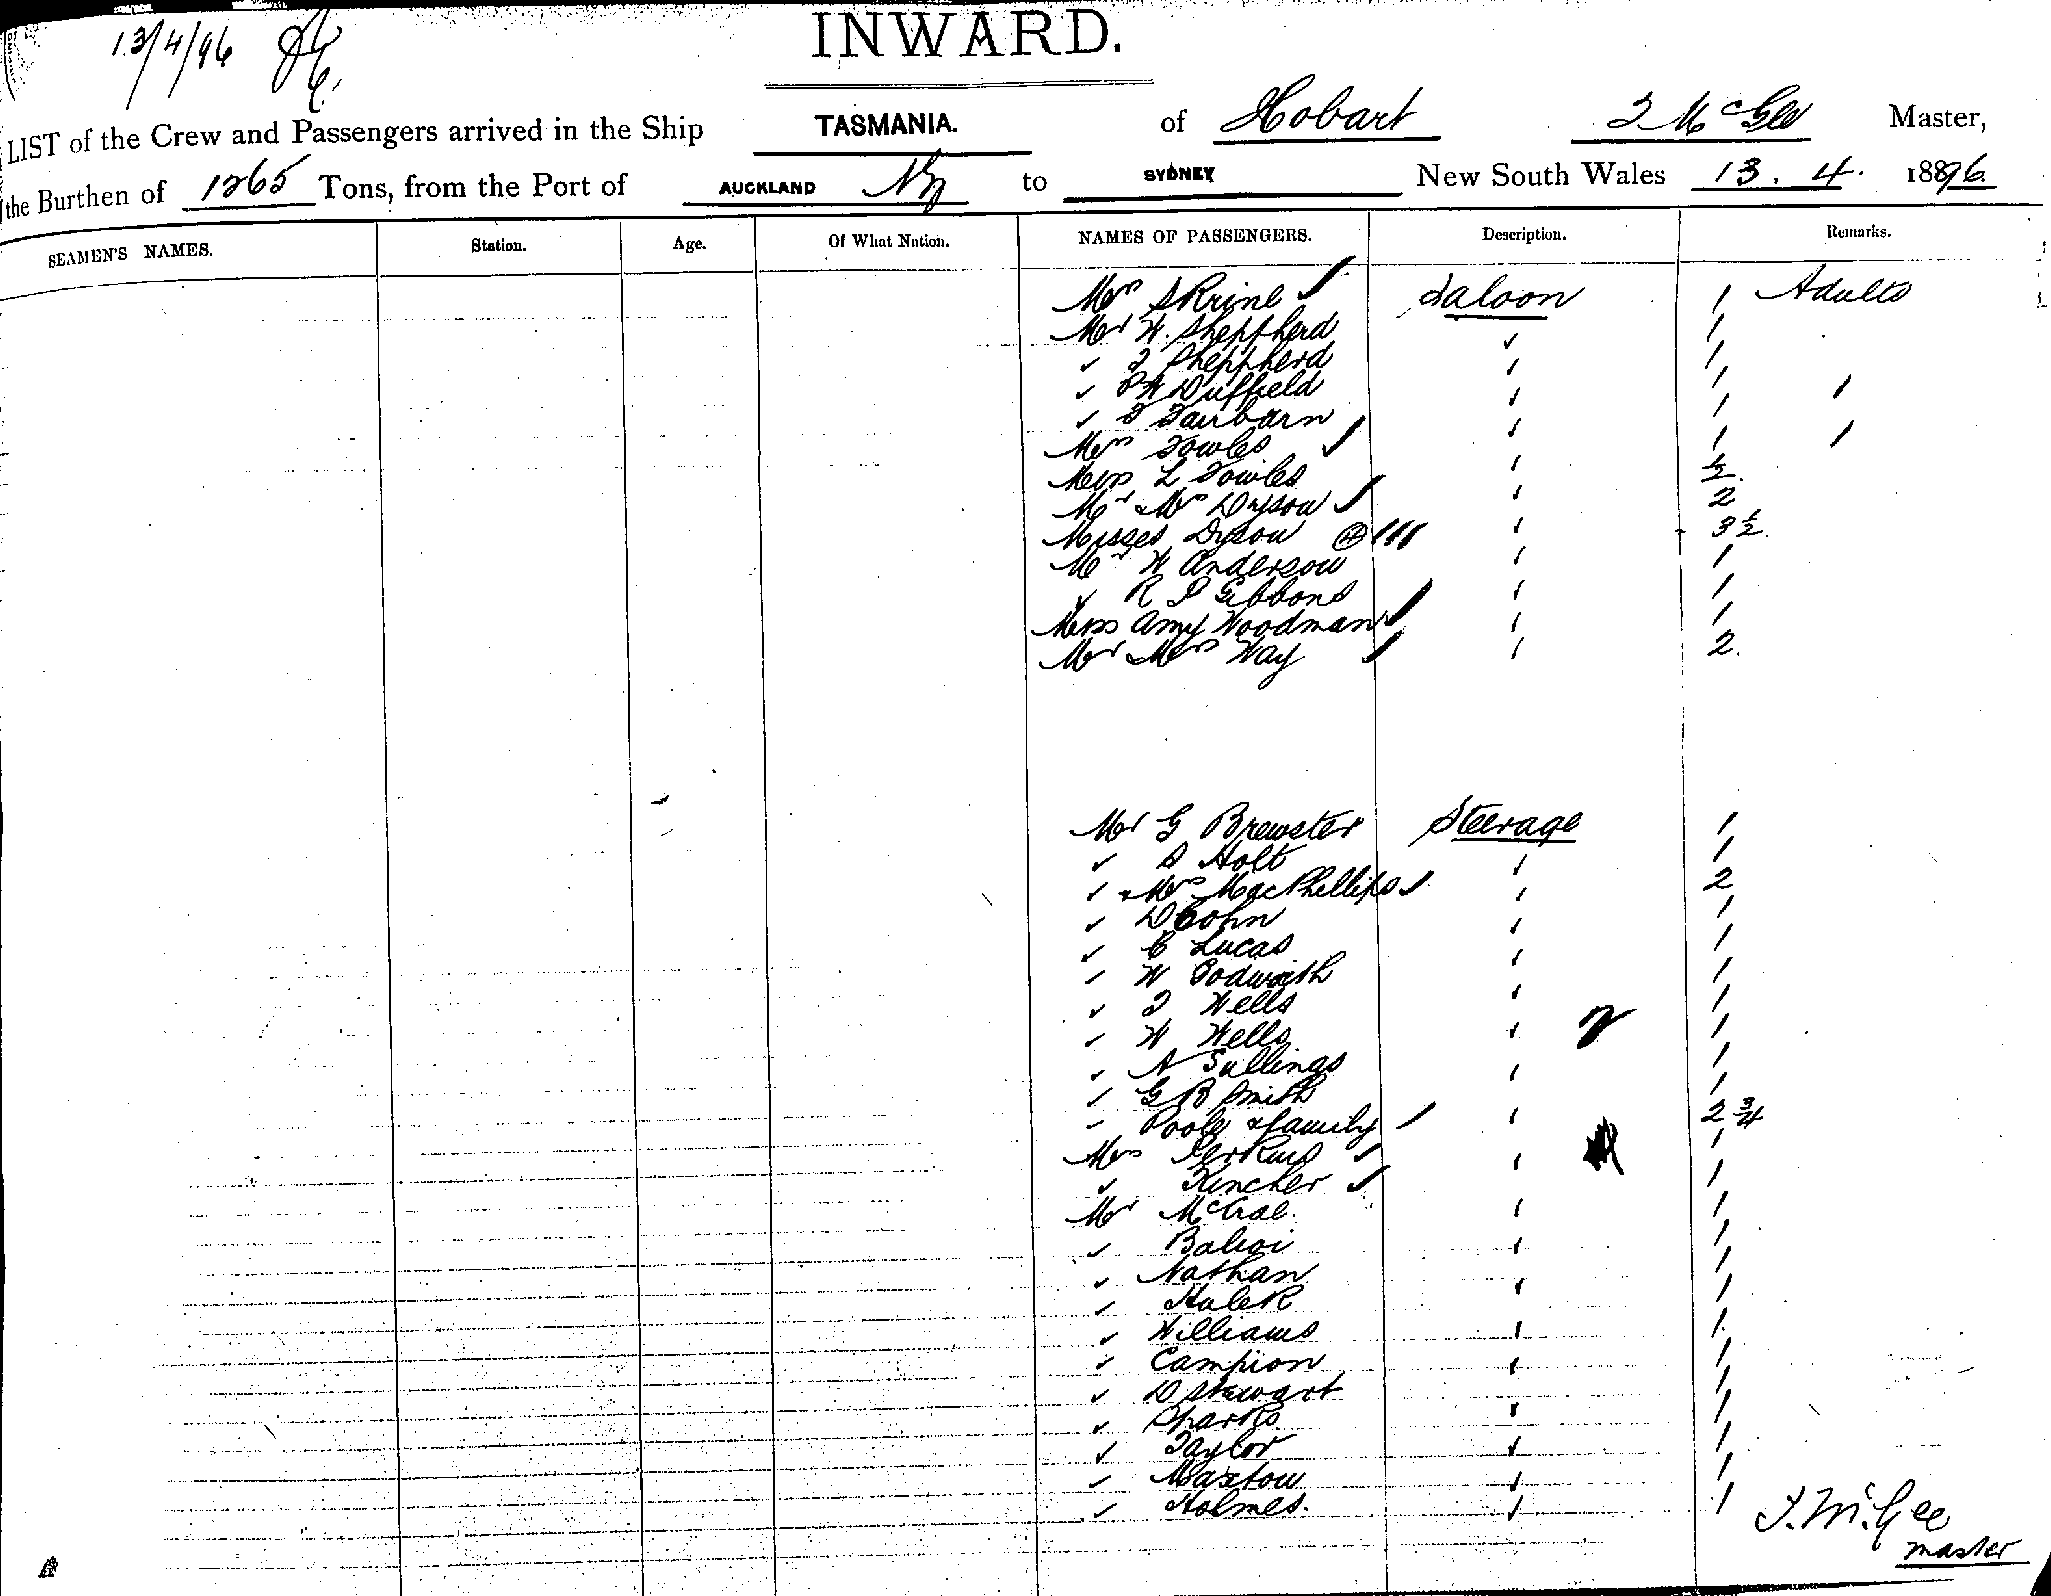 13/4/96
INWARD.
LIST of the Crew and Passengers arrived in the Ship TASMANIA. of Hobart J McGee Master,
the Burthen of 1265 Tons, from the Port of AUCKLAND NZ to SYDNEY New South Wales 13. 4. 1896
SEAMEN'S NAMES. Station. Age. Of What Nation. NAMES OF PASSENGERS. Description. Remarks.
Mrs Skrine Saloon 1 Adults
Mr W. Sheppherd 1
✓ J Sheppherd 1
✓ P W Duffield 1
✓ T Fairbarn 1
Mrs Fowles 1
Miss L Fowles ½
Mr & Mrs Dyson 2
Misses Dyson (4) 3½
Mr W Anderson 1
✓ R J Gibbons 1
Miss Amy Woodman 1
Mr & Mrs Way 2.
Mr G Brewster Steerage 1
✓ S Holt 1
✓ & Mrs MacPhillips 2
✓ D Cohn 1
✓ C Lucas 1
✓ W 1
✓ J Wells 1
✓ W Wells 1
✓ A 1
✓ G B Smith 1
✓ Poole & family 2¾
Mrs Perkins 1
✓ Kincher 1
Mr McCrae. 1
✓ 1
✓ Nathan 1
✓ 1
✓ Williams 1
✓ Campion 1
✓ D Stewart 1
✓ Sparks 1
✓ Taylor 1
✓ 1
✓ Holmes. 1
J. McGee
master